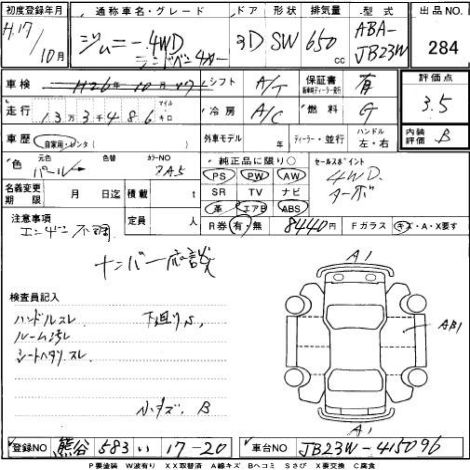 初度登録年月 通称車名・グレード ドア 形状 排気量 型式 出品NO.
H.17/10月 ジムニー 4WD ランドベンチャー 3D SW 650cc ABA-JB23W 284
車検 H26年10月 シフト A/T 保証書 有 評価点 3.5
走行 13万3千486 マイル キロ 冷房 A/C 燃料 G
車歴 自家用・レンタ( ) 外車モデル 年 ディーラー・並行 ハンドル 左・右 内装評価 B
色 元色 パール 色替 カラーNO 純正品に限り○ セールスポイント
名義変更期限 月 日迄 積載 t PS PW AW 4WD
定員 人 SR TV ナビ ターボ
革 エアB ABS
注意事項 R券 有・無 8440円 Fガラス キズ・A・X要す
エンジン不調
ナンバー応談
検査員記入
ハンドルスレ 下廻りS,
ルーム汚レ
シートヘタリ スレ
小キズ, B
A1
AB1
A1
登録NO 熊谷 583 い 17-20 車台NO JB23W-415096
P要塗装 W波有り XX取替済 A線キズ Bヘコミ Sさび X要交換 C腐食